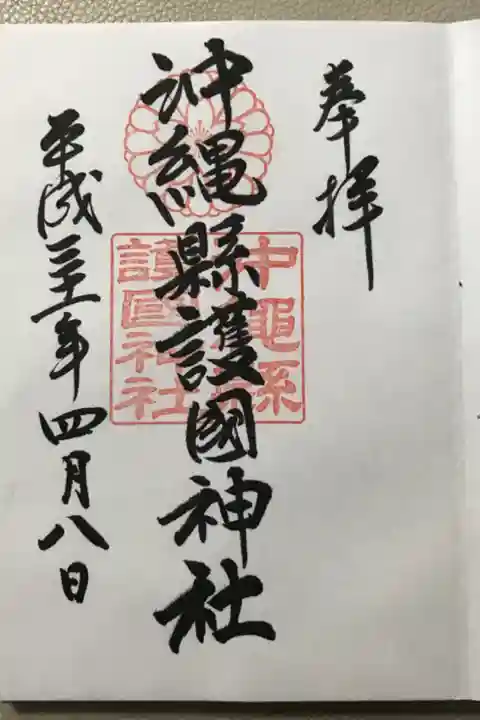 奉拝
沖縄縣護國神社
平成三十一年四月八日
沖縄縣
護國神社